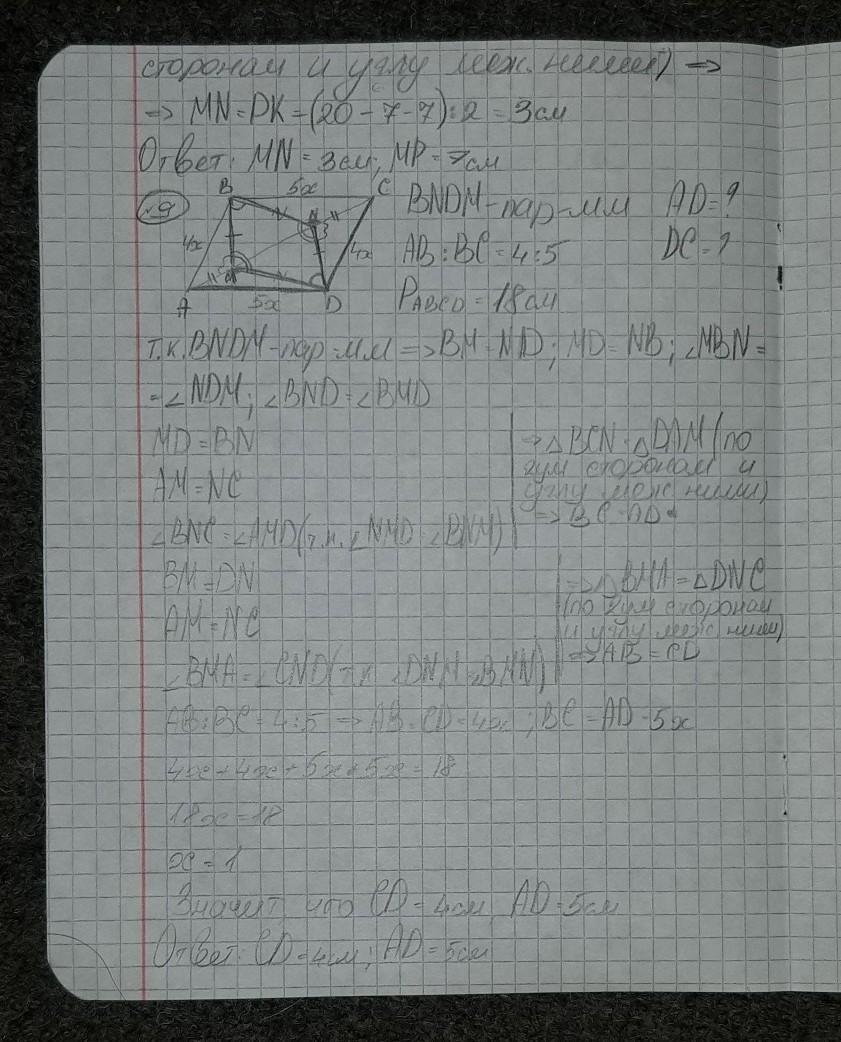 сторонам и углу меж. ними) =>
=> MN = PK = (20 - 7 - 7) : 2 = 3 см
Ответ: MN = 3 см; MP = 7 см
№9
B 5x C
4x N 3 4x
A 5x D
BNDM - пар-мм AD = ?
AB : BC = 4 : 5 DC = ?
PABCD = 18 см
Т.к. BNDM - пар-мм => BM = ND; MD = NB; ∠MBN =
= ∠NDM; ∠BND = ∠BMD
MD = BN
AM = NC
∠BNC = ∠AMD (т.к. ∠NMD = ∠BNM)
=> △BCN = △DAM (по
2ум сторонам и
углу меж ними)
=> BC = AD
BM = DN
AM = NC
∠BMA = ∠CND (т.к. ∠DNM = ∠BMN)
=> △BMA = △DNC
(по 2ум сторонам
и углу меж ними)
=> AB = CD
AB : BC = 4 : 5 => AB = CD = 4x; BC = AD = 5x
4x + 4x + 5x + 5x = 18
18x = 18
x = 1
Значит, что CD = 4 см, AD = 5 см
Ответ: CD = 4 см; AD = 5 см